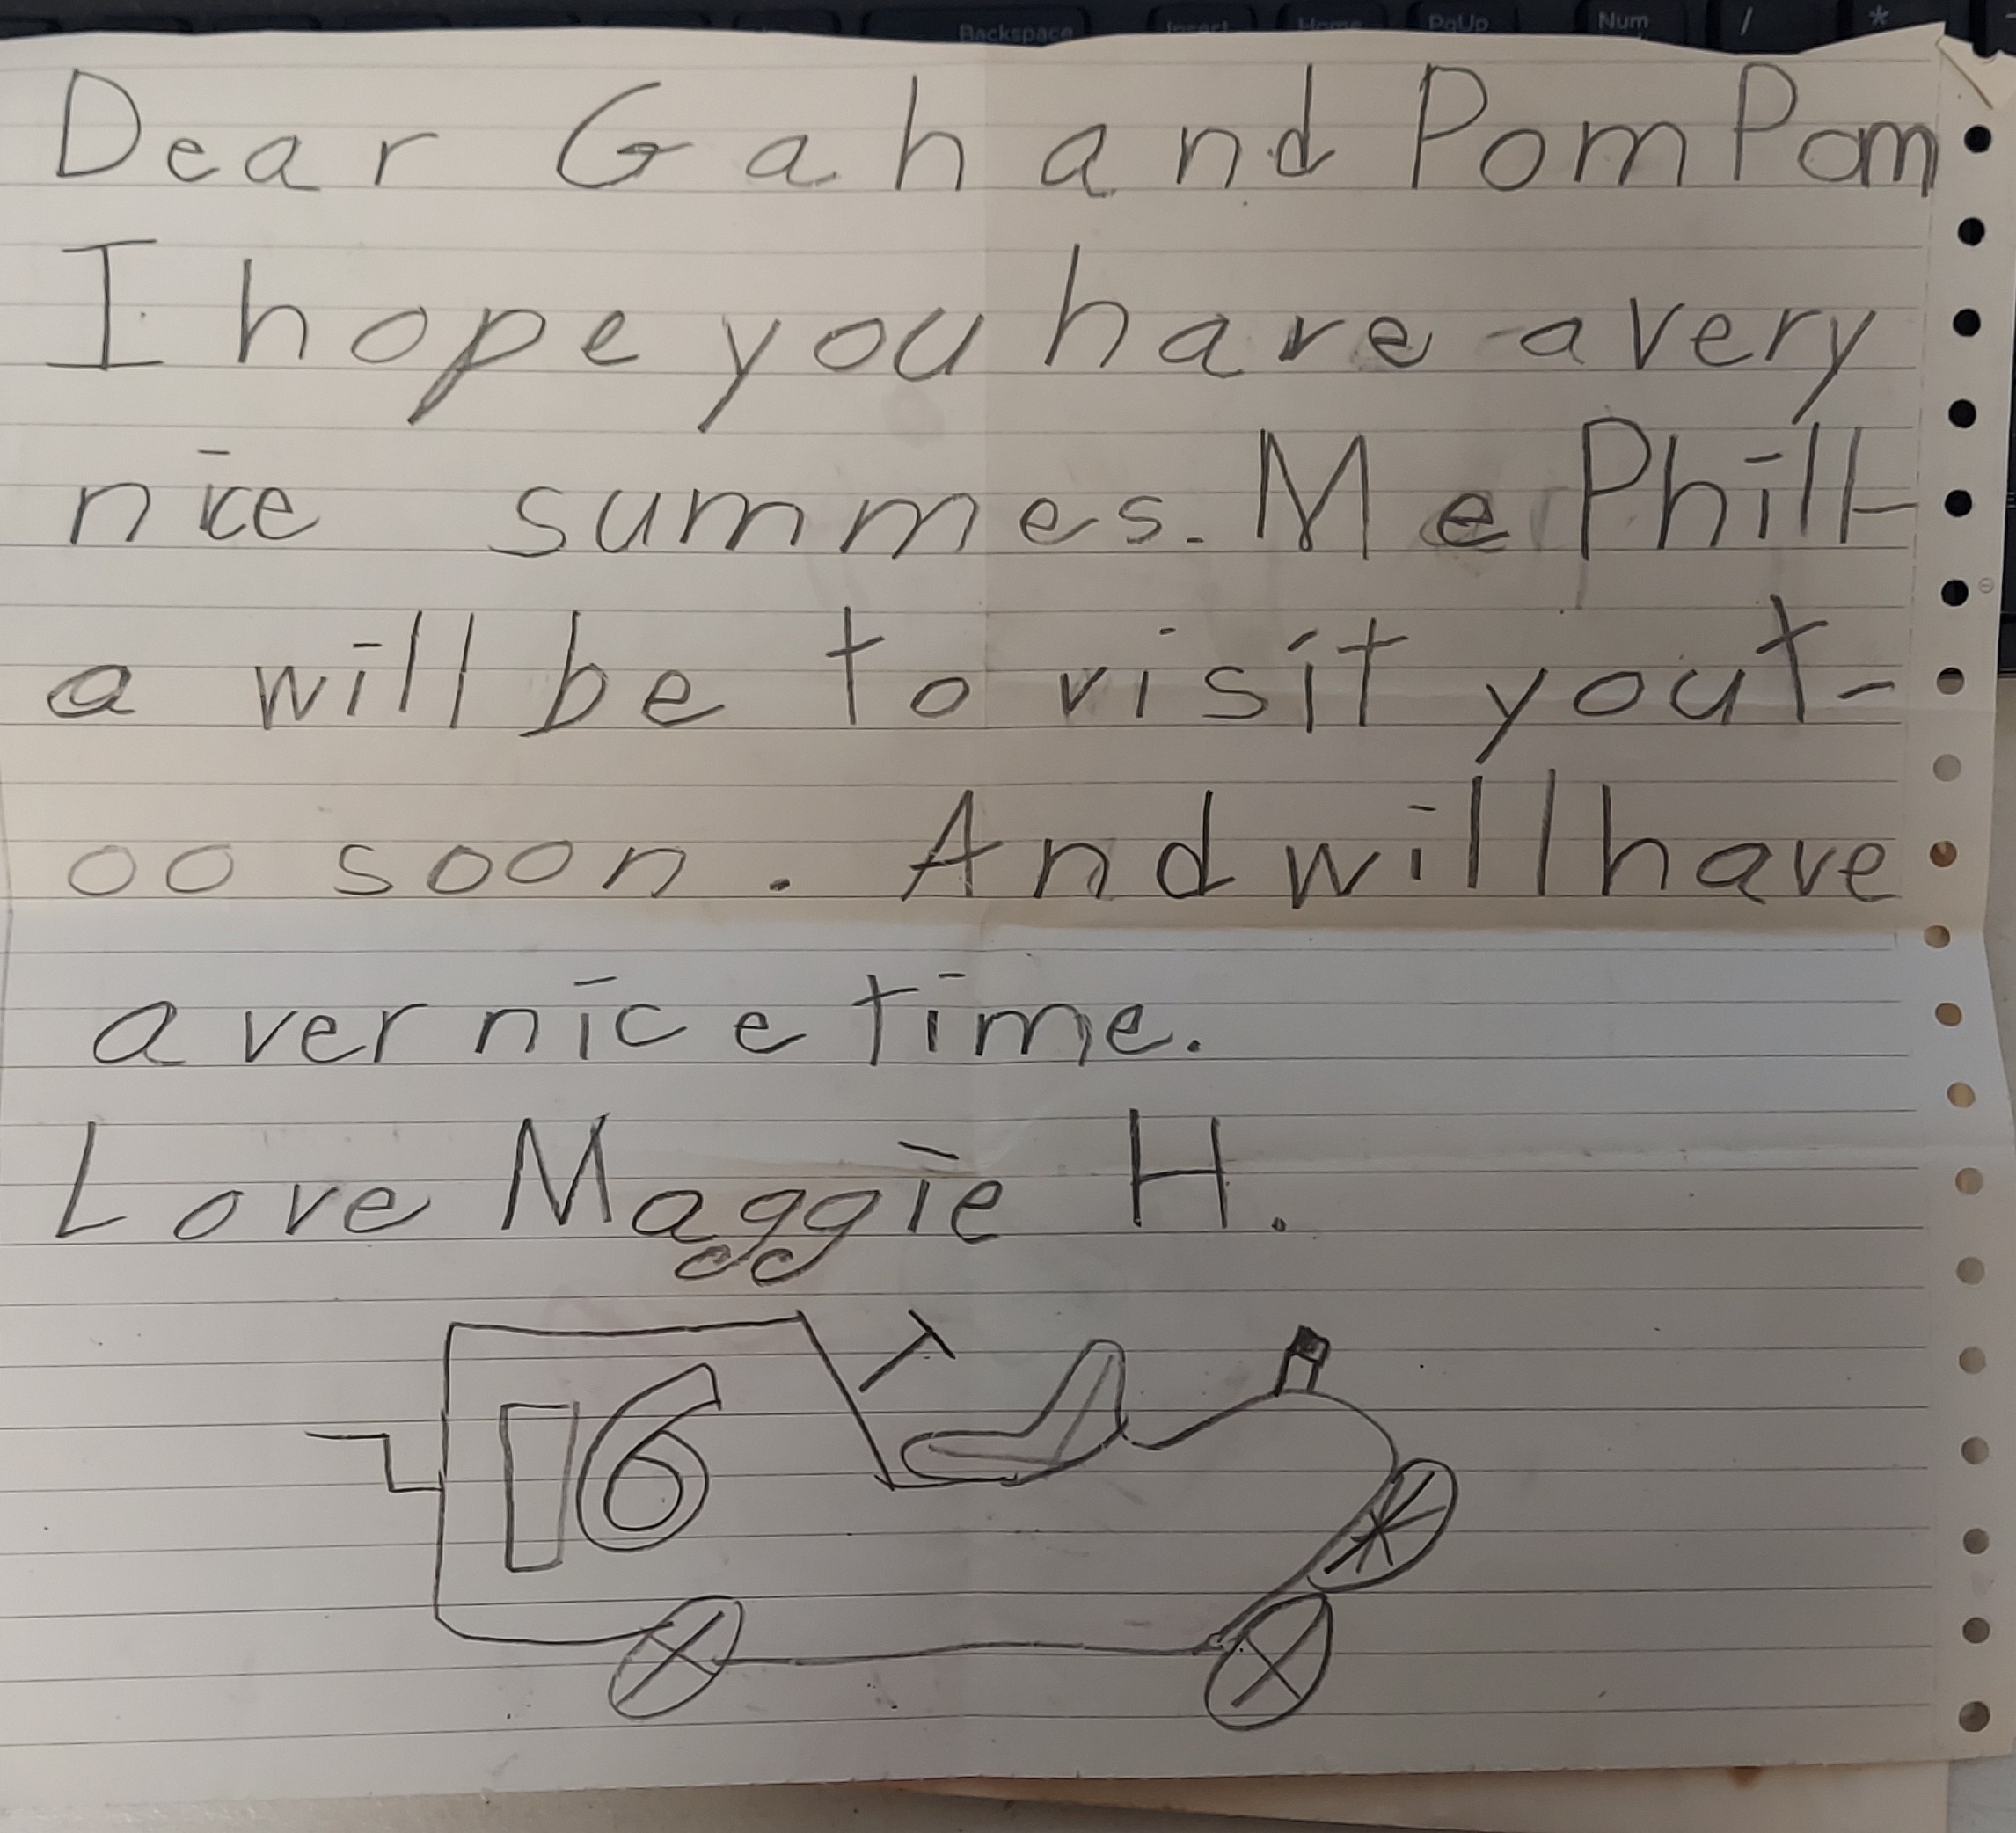 Backspace Insert Home PgUp Num / *
Dear Gah and PomPom
I hope you have a very
nice summes. Me Phill-
a will be to visit you t-
oo soon. And will have
a ver nice time.
Love Maggie H.
16